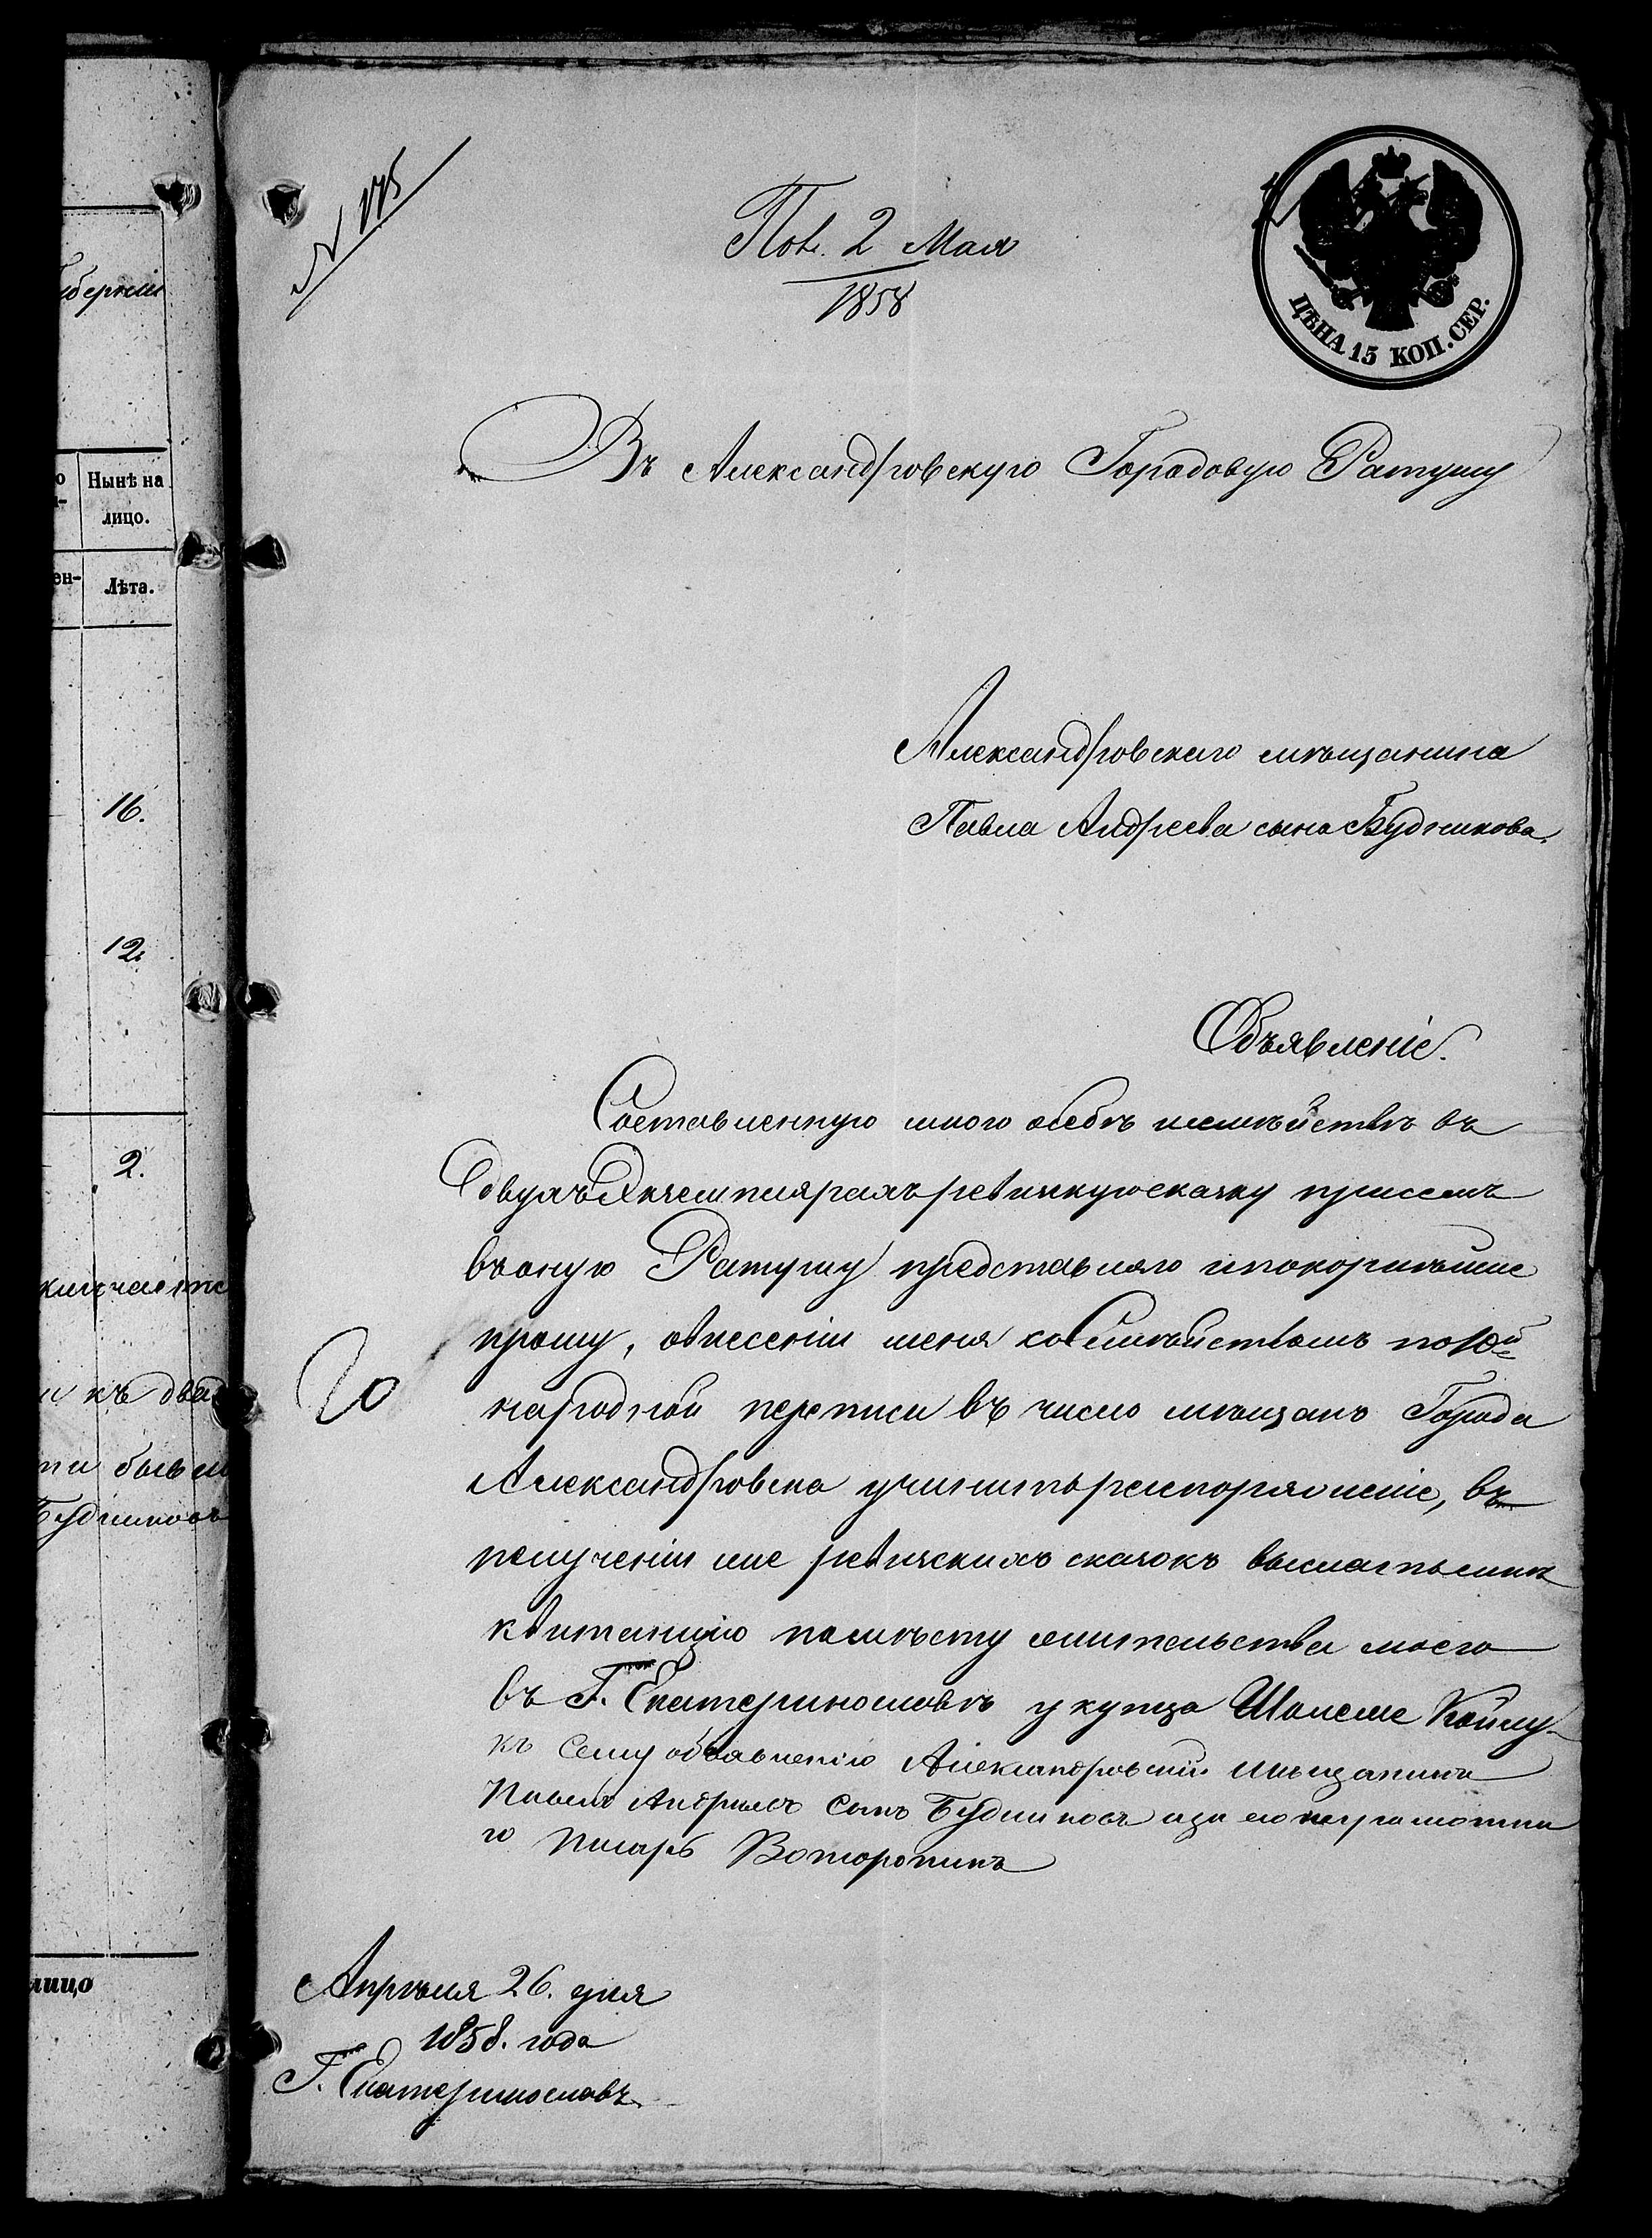 губерніи
Нынѣ на
лицо.
Лѣта.
16.
12.
2.
къ два
Будниковъ
лицо
№ 175
Пов. 2 Мая
1858
ЦѢНА 15 КОП. СЕР.
Въ Александровскую Городовую Ратушу
Александровскаго мѣщанина
Павла Андреева сына Будникова.
Объявленіе.
Составленную мною о себѣ и семѣйствѣ въ
двухъ Экземплярахъ ревизкую скаску при семъ
въ оную Ратушу представляю и покорнѣйше
прошу, о внесеніи меня со Семѣйствомъ по 10й
20
народной переписи въ число мѣщанъ Города
Александровска учинить распоряженіе, въ
получении же ревизскихъ сказокъ выслать мнѣ
квитанцію по мѣсту жительства моего
въ Г. Екатеринославѣ у купца Шолеме
къ Сему объявленію Александровскій мѣщанинъ
Павелъ Андреевъ Сынъ Будниковъ а за его неграмотны
го Писарь Воторопинъ
Апрѣля 26. дня
1858. года
Г. Екатеринославъ.